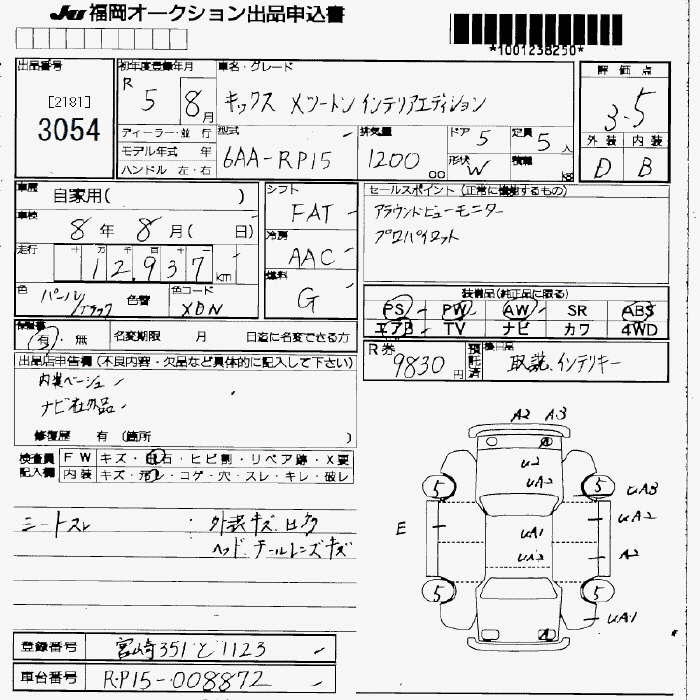 JU 福岡オークション出品申込書
*1001238250*
出品番号
[2181]
3054
初年度登録年月
R 5 8月
車名・グレード
キックス Xツートンインテリアエディション
評価点
3.5
外装 内装
D B
ディーラー・並行
モデル年式 年
ハンドル 左・右
型式
6AA-RP15
排気量
1200 00
ドア 5
形状 W
定員 5人
積載 kg
車歴
自家用( )
車検
8年 8月( 日)
走行
十 万 千 百 十
12,937 km
色 パール/ブラック 色替
色コード
XDN
シフト
FAT
冷房
AAC
燃料
G
セールスポイント(正常に機能するもの)
アラウンドビューモニター
プロパイロット
装備品(純正品に限る)
PS PW AW SR ABS
エアB TV ナビ カワ 4WD
保証書
有・無
名変期限 月 日迄に名変できる方
R券
9830円
預託済
後日品
取説、インテリキー
出品店申告欄(不良内容・欠品など具体的に記入して下さい)
内装ベージュ
ナビ社外品
修復歴 有(箇所 )
検査員記入欄
FW キズ・飛石・ヒビ割・リペア跡・X要
内装 キズ・汚レ・コゲ・穴・スレ・キレ・破レ
シートスレ : 外装キズ、凹多
ヘッド、テールレンズキズ
A2 A3
A
U2
UA2
5 5
UA3
UA2
E
UA1
UA2
A2
5 5
UA1
A
登録番号 宮崎351と1123
車台番号 RP15-008872